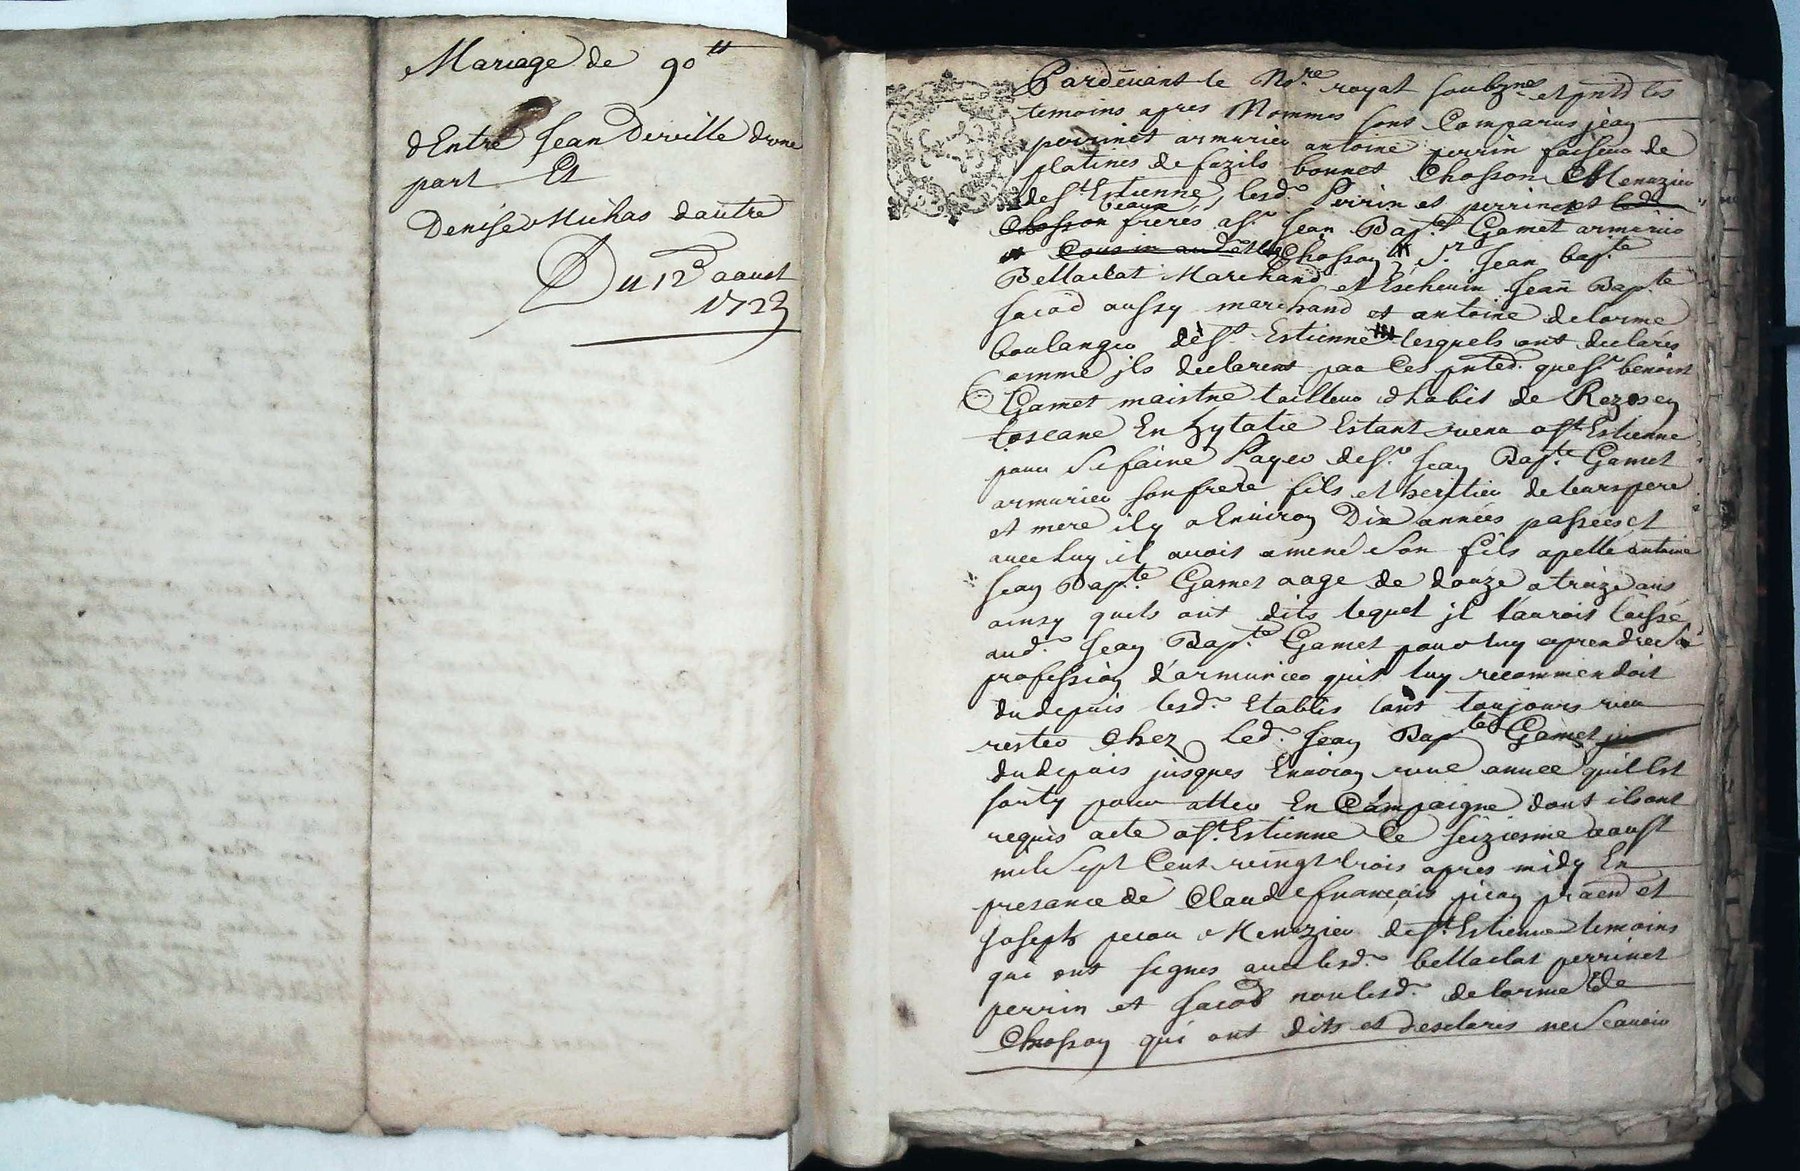 Mariage de 90ᵗᵗ
dEntre Jean Derville dune
part Et
Denise Michas dautre
Du 12ᵉ aoust
1723
Pardevant le Nʳᵉ royal soubzⁿᵉ et pntd les
temoins apres Nommes sont Comparus jean
perrinet armurier antoine perrin faiseur de
platines de fuzils bonnet Chosson Menuzier
de Sᵗ Estienne lesd. Perrin et perrinet ledᵗ
Chosson beaux freres aSʳ Jean Bapᵗᵉ Gamet armurier
Cousin audᵗ Chosson Sʳ Jean bapᵗᵉ
Bellaclat Marchand et Eschevin Jean Bapᵗᵉ
Jacod aussy marchand et antoine delorme
boulanger de Sᵗ Estienne lesquels ont declarés
omme jls declarent par Ces pntes que Sʳ benoist
Gamet maistre tailleur dhabit de
toscane En hytalie Estant venu a Sᵗ Estienne
pour Se faire Payer de Sʳ Jean Bapᵗᵉ Gamet
armurier son frere fils et heritier de leurs pere
et mere il y a Environ Dix années passées et
avec luy il avois amené Son fils apellé antoine
Jean Bapᵗᵉ Gamet aage de douze a treize ans
ainsy quils ont dits lequel jl lauroit laissé
aud. Jean Bapᵗᵉ Gamet pour luy aprendre Sa
profession d'armurier quil luy recommendoit
dudepuis lesd. Etablis lont toujours veu
rester Chez Led. Jean Bapᵗᵉ Gamet
dudepuis jusques Environ une annee quil Est
sorty pour aller En Campaigne dont ils ont
requis acte a Sᵗ Estienne Ce seiziesme aoust
mil Sept Cent vingt trois apres midy En
presance de Claude francois picon praen et
Joseph Menuzier de Sᵗ Estienne temoins
qui ont signes avec lesd. bellaclat perrinet
perrin et Jacod non lesd. delorme
Chosson qui ont dits et desclaris ne Scavoir